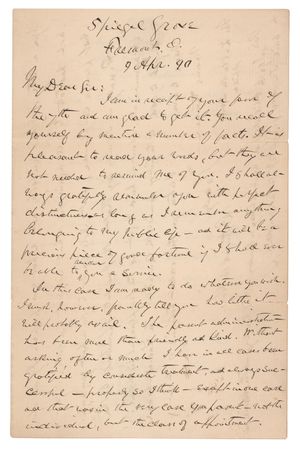 Spiegel Grove
Fremont, O.
9 Apr. 90
My Dear Sir:
I am in receipt of your favor of
the 7th and am glad to get it. You recall
yourself by mention a number of facts. It is
pleasant to read your words, but they are
not needed to remind me of you. I shall al-
ways gratefully remember you with perfect
distinctness as long as I remember anything
belonging to my public life - and it will be a
precious piece of good fortune if I should ever
be able to render you a service.
In this case I am ready to do whatever you wish.
I must, however, frankly tell you how little it
will probably avail. The present administration
has been more than friendly and kind. Without
asking often or much I have in all cases been
gratified by considerate treatment, and always suc-
cessful - properly so I think - except in one case
and that was in the very case you - not the
individual, but the class of appointment.